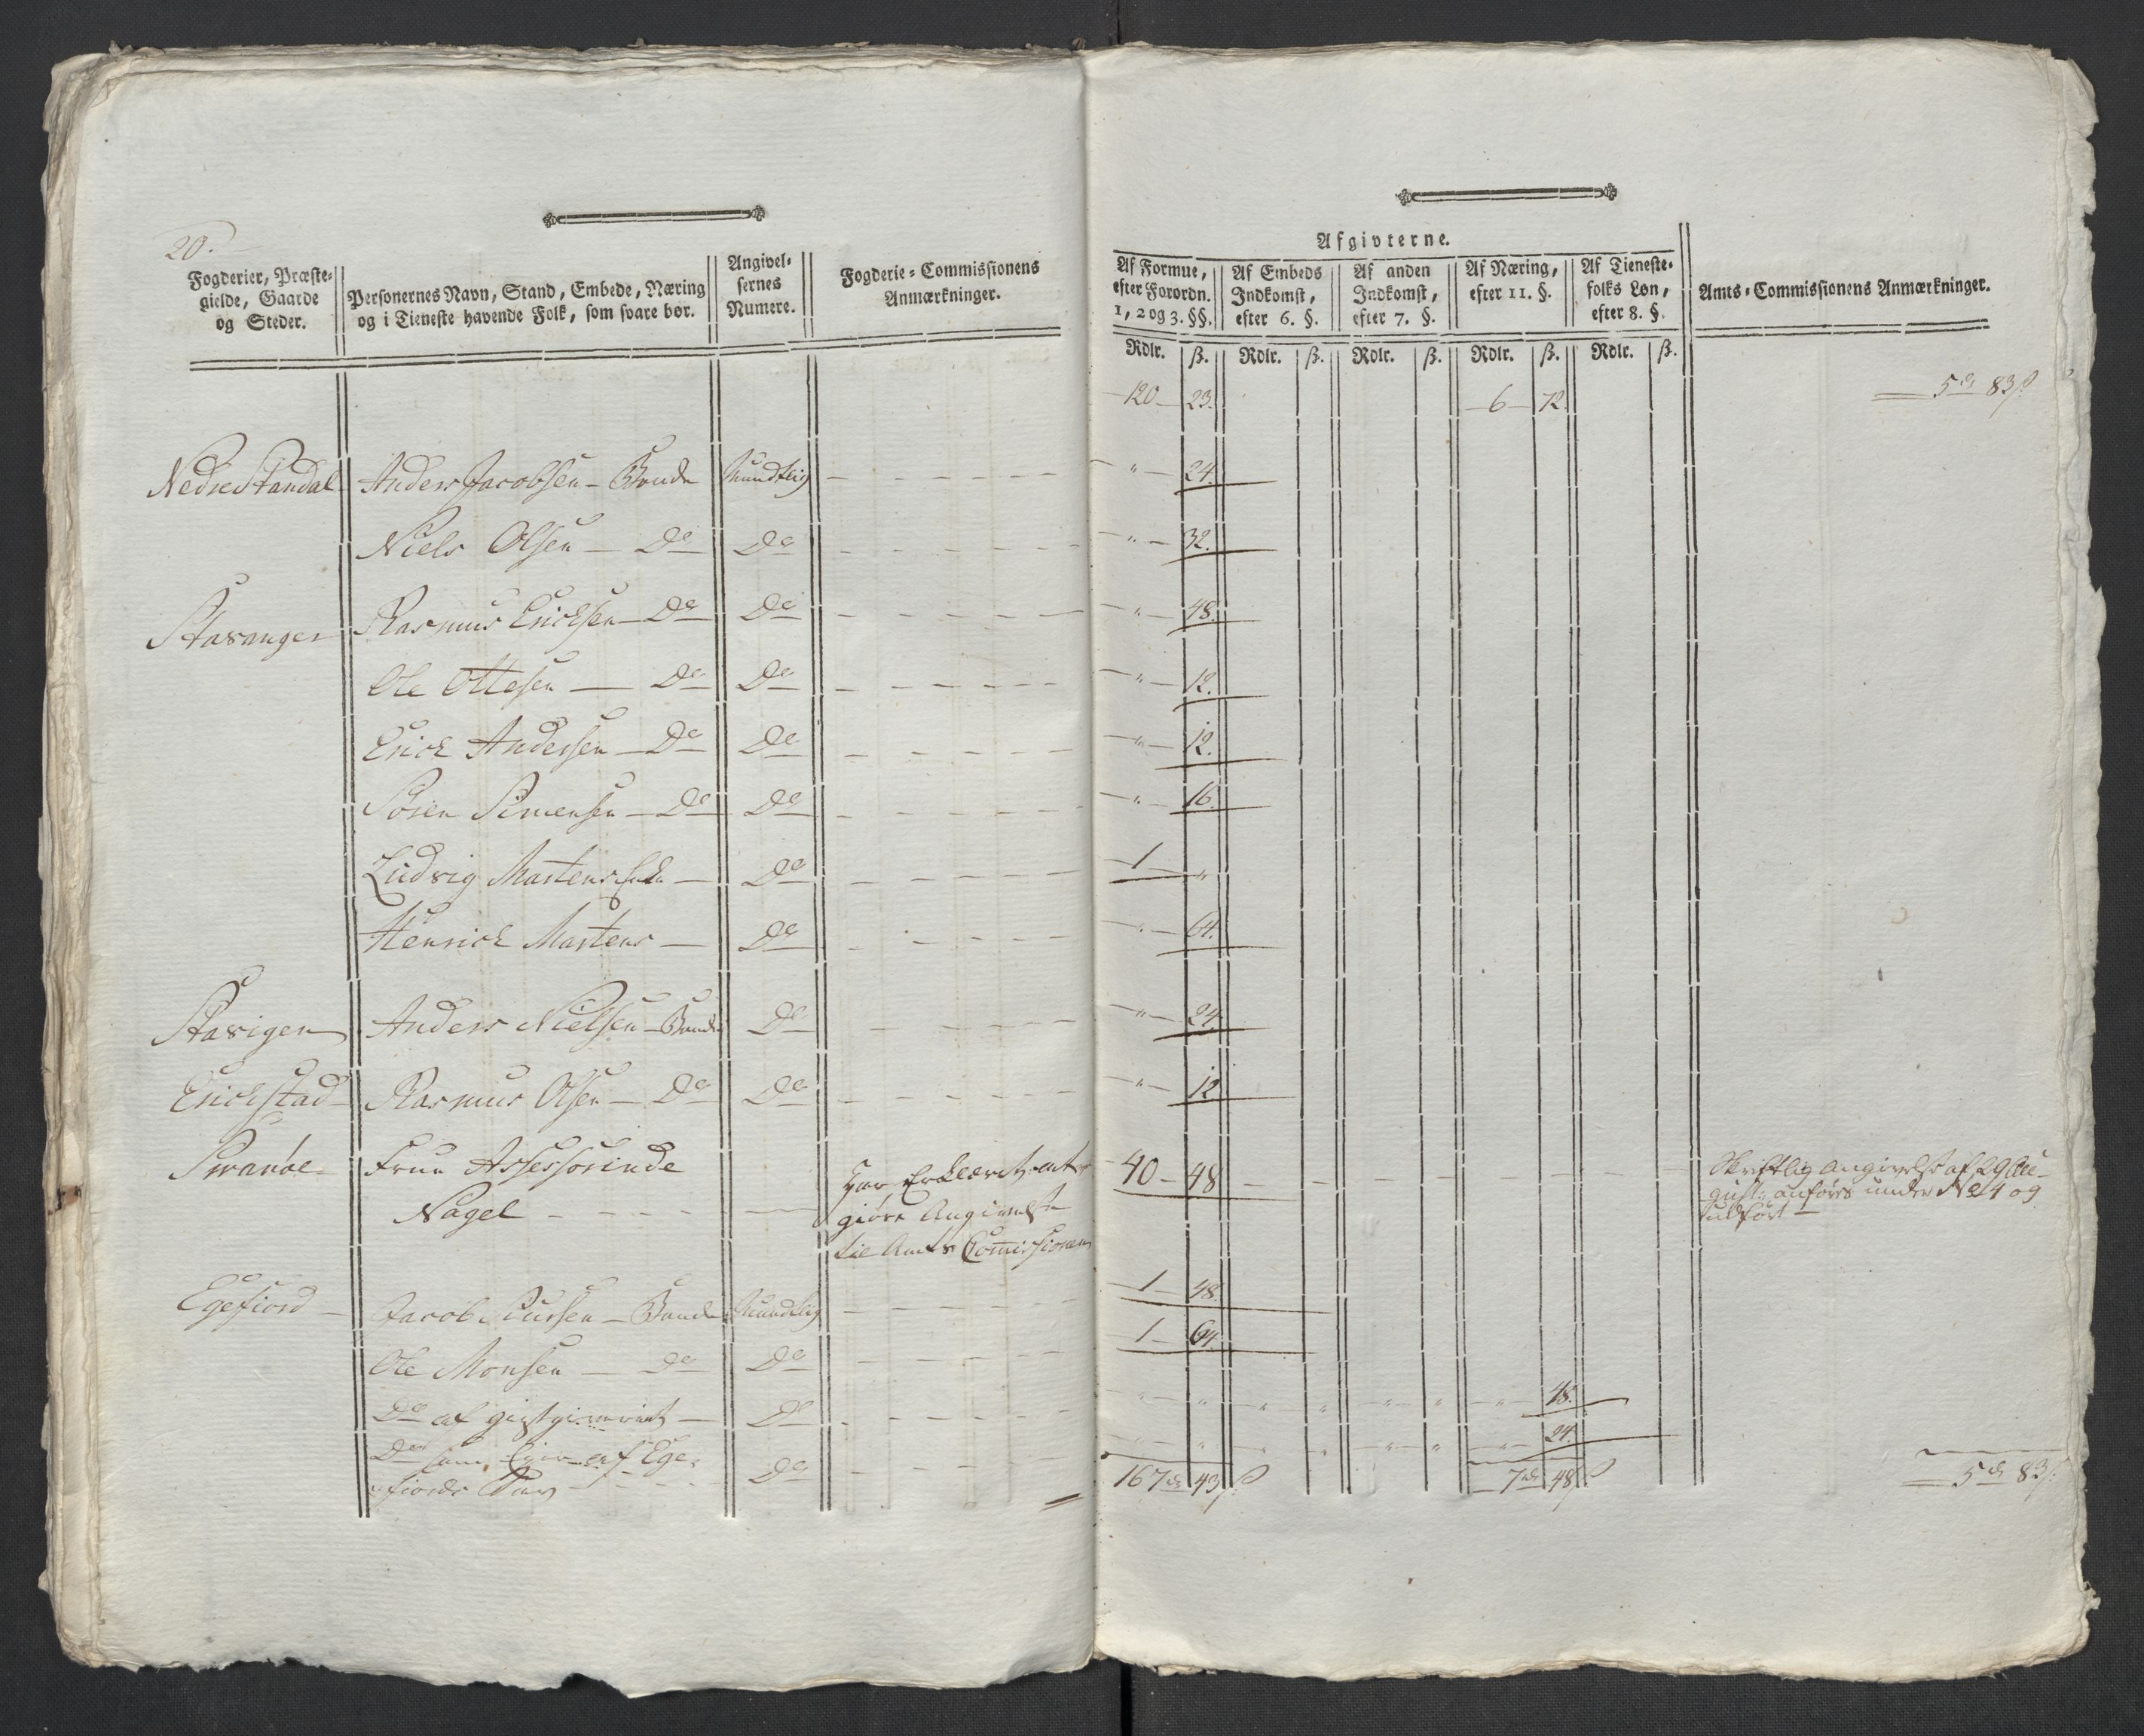 20.
Fogderier, Præste-
gielde, Gaarde
og Steder.
Personernes Navn, Stand, Embede, Næring
og i Tieneste havende Folk, som svare bør.
Angivel-
sernes
Numere.
Fogderie-Commissionens
Anmærkninger.
Afgivterne.
Af Formue,
efter Forordn.
1, 2 og 3. §§.
Af Embeds
Indkomst,
efter 6. §.
Af anden
Indkomst,
efter 7. §.
Af Næring,
efter 11. §.
Af Tieneste-
folks Løn,
efter 8. §.
Amts-Commissionens Anmærkninger.
Rdlr. ß. Rdlr. ß. Rdlr. ß. Rdlr. ß. Rdlr. ß.
120 23. 6 72. 5 rd 83 ß
Nedre Standal Anders Jacobsen - Bonde Mundtlig " 24.
Niels Olsen - Do Do " 32.
Stavanger Rasmus Ericksen - Do Do " 48.
Ole Ottesen - Do Do " 12.
Erick Andersen - Do Do " 12.
Sören Simensen - Do Do " 16.
Ludvig Martens Do 1 "
Henrick Martens - Do " 64.
Stavigen Anders Nielsen - Bonde Do " 24.
Erickstad Rasmus Olsen - Do Do " 12
Svanöe Frue Assessorinde
Nagel
Har Erklæret at
giöre Angivelse
til Amts Commissionen
40 48
Skriftlig Angivelse af 29 Au-
gust: anföres under No 4 og
udfört
Egefiord Jacob - Bonde Mundtlig 1 48.
Ole Monsen - do Do 1 64.
Do af giestgiveriet - Do " " " " " " " 48.
Do som Eier af Ege-
fiords Do " " " " " " " 24.
167 rd 43 ß 7 rd 48 ß 5 rd 83 ß